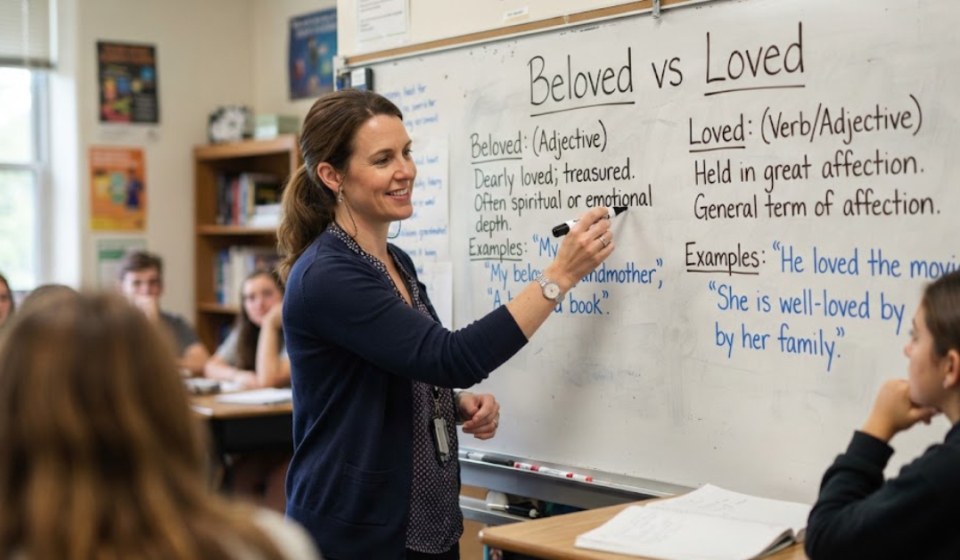 Beloved vs Loved
Beloved: (Adjective)
Dearly loved; treasured.
Often spiritual or emotional
depth.
Examples: "My
"My
"A book".
Loved: (Verb/Adjective)
Held in great affection.
General term of affection.
Examples: "He loved the
"She is well-loved by
by her family."